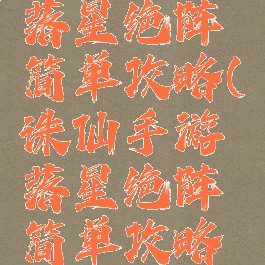 落星绝阵
简单攻略(
诛仙手游
落星绝阵
简单攻略